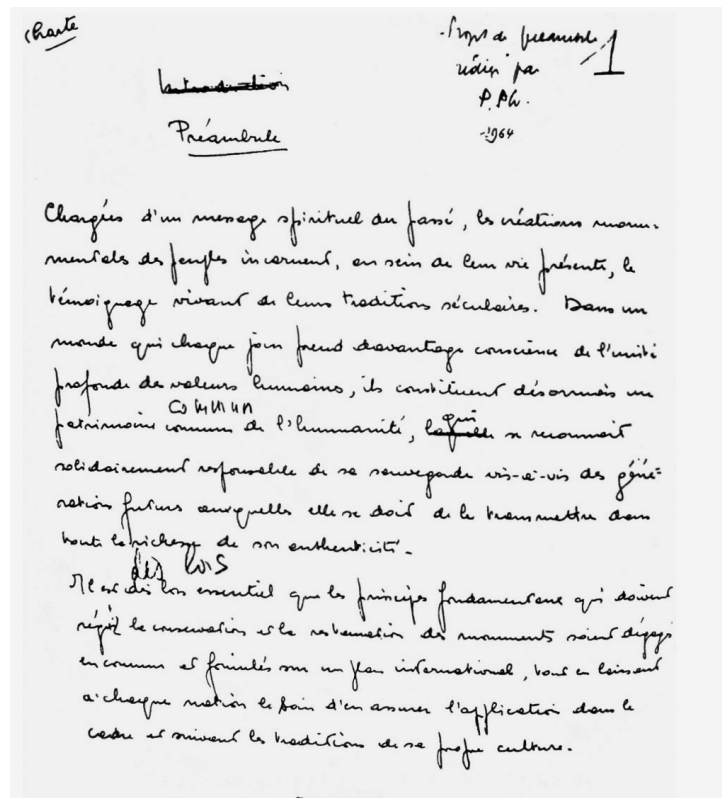 Charte
Projet de préambule
rédigé par
P. Ph.
1964
1
Introduction
Préambule
Chargées d'un message spirituel du passé, les créations monu-
mentales des peuples incarnent, au sein de leur vie présente, le
témoignage vivant de leurs traditions séculaires. Dans un
monde qui chaque jour prend davantage conscience de l'unité
profonde des valeurs humaines, ils constituent désormais un
commun qui
patrimoine commun de l'humanité, laquelle se reconnait
solidairement responsable de sa sauvegarde vis-à-vis des géné-
rations futures auxquelles elle se doit de le transmettre dans
toute la richesse de son authenticité.
dès lors
Il est dès lors essentiel que les principes fondamentaux qui doivent
régir la conservation et la restauration des monuments soient dégagés
en commun et formulés sur un plan international, tout en laissant
à chaque nation le soin d'en assurer l'application dans le
cadre et suivant les traditions de sa propre culture.